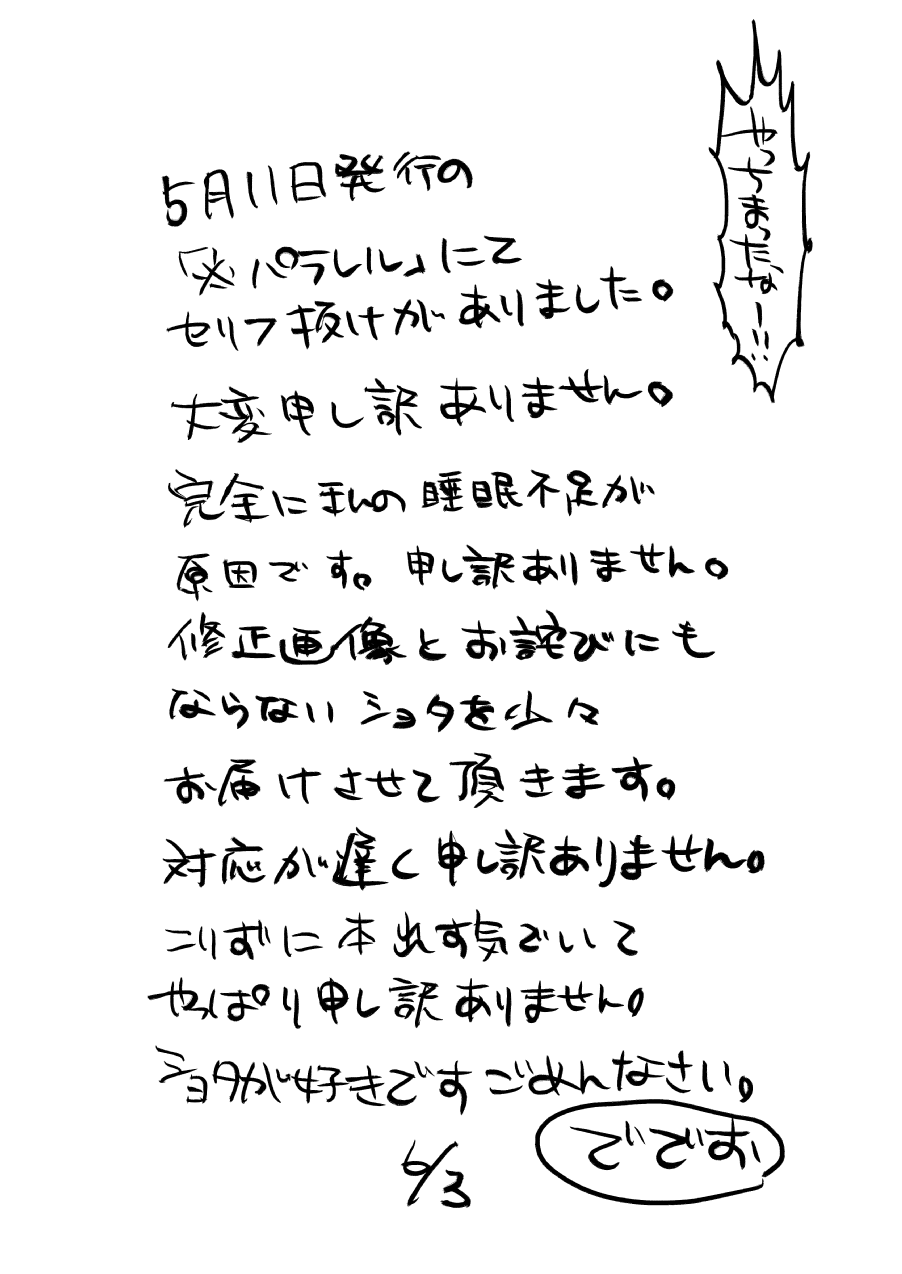 やっちまったなー!!
5月11日発行の
「※パラレル」にて
セリフ抜けがありました。
大変申し訳ありません。
完全に私の睡眠不足が
原因です。申し訳ありません。
修正画像とお詫びにも
ならないショタを少々
お届けさせて頂きます。
対応が遅く申し訳ありません。
こりずに本出す気でいて
やっぱり申し訳ありません。
ショタが好きですごめんなさい。
6/3
でです